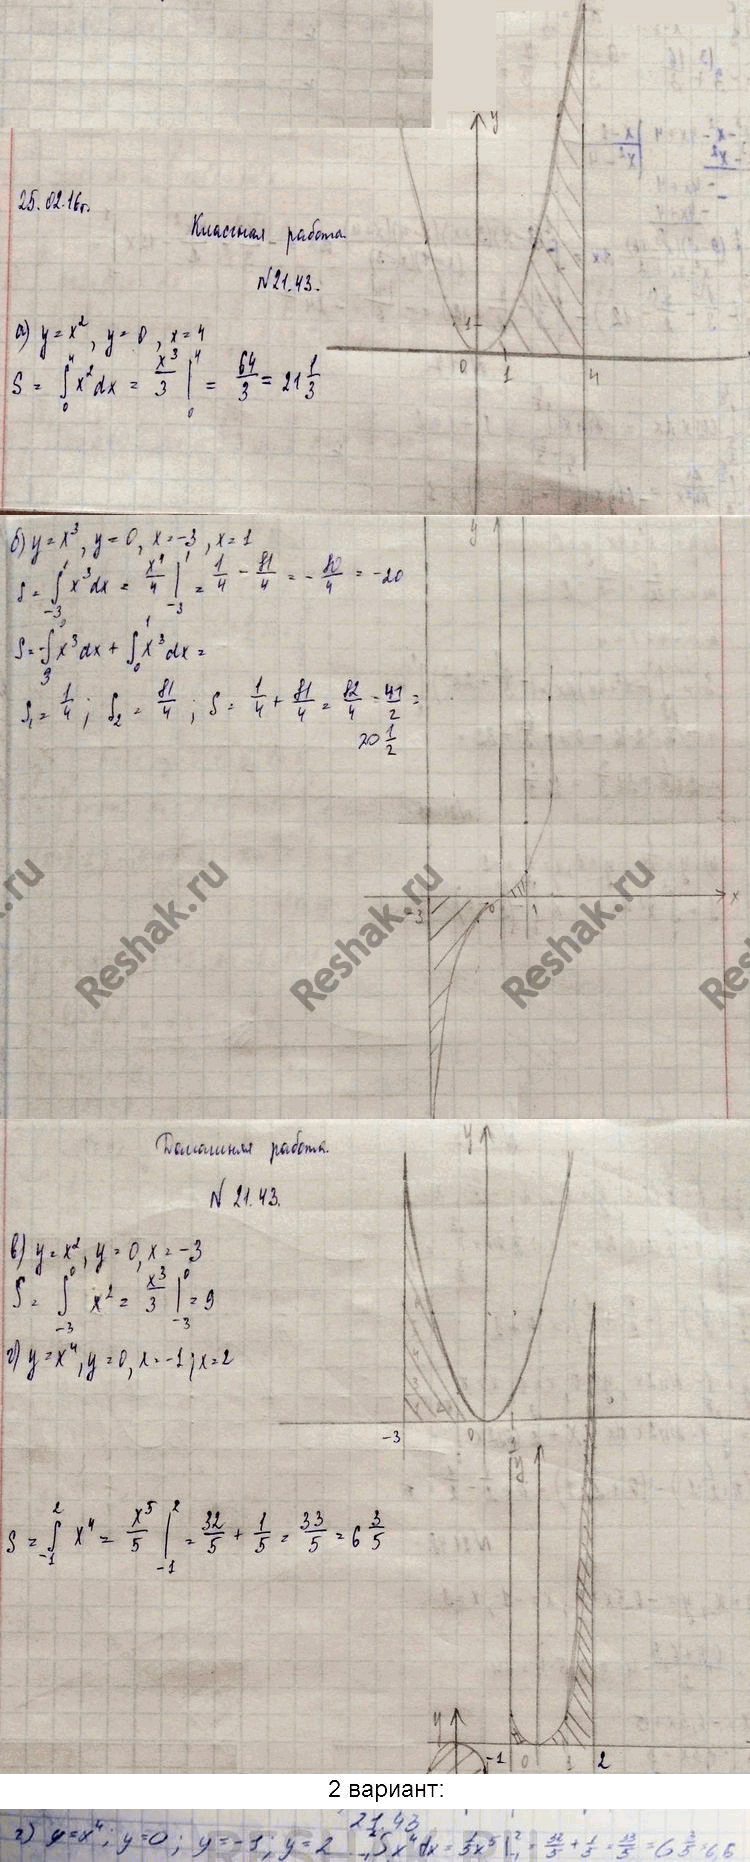 25.02.16г.
Классная работа.
N 21.43.
а) y=x², y=0, x=4
S = ∫₀⁴ x²dx = x³/3 |₀⁴ = 64/3 = 21 1/3
y
1
0 1 4
б) y=x³, y=0, x=-3, x=1
S = ∫₋₃¹ x³dx = x⁴/4 |₋₃¹ = 1/4 - 81/4 = -80/4 = -20
S = -∫₃⁰ x³dx + ∫₀¹ x³dx =
S₁ = 1/4; S₂ = 81/4; S = 1/4 + 81/4 = 82/4 = 41/2 =
20 1/2
y
-3 0 1 x
Reshak.ru
Reshak.ru
Reshak.ru
Домашняя работа.
N 21.43.
в) y=x², y=0, x=-3
S = ∫₋₃⁰ x² = x³/3 |₋₃⁰ = 9
y
-3 0 1
г) y=x⁴, y=0, x=-1; x=2
S = ∫₋₁² x⁴ = x⁵/5 |₋₁² = 32/5 + 1/5 = 33/5 = 6 3/5
y
y
-1 0 1 2
2 вариант:
21.43
г) y=x⁴; y=0; y=-1; y=2 ₋₁²∫x⁴dx = 1/5x⁵|₋₁² = 32/5 + 1/5 = 33/5 = 6 3/5 = 6,6